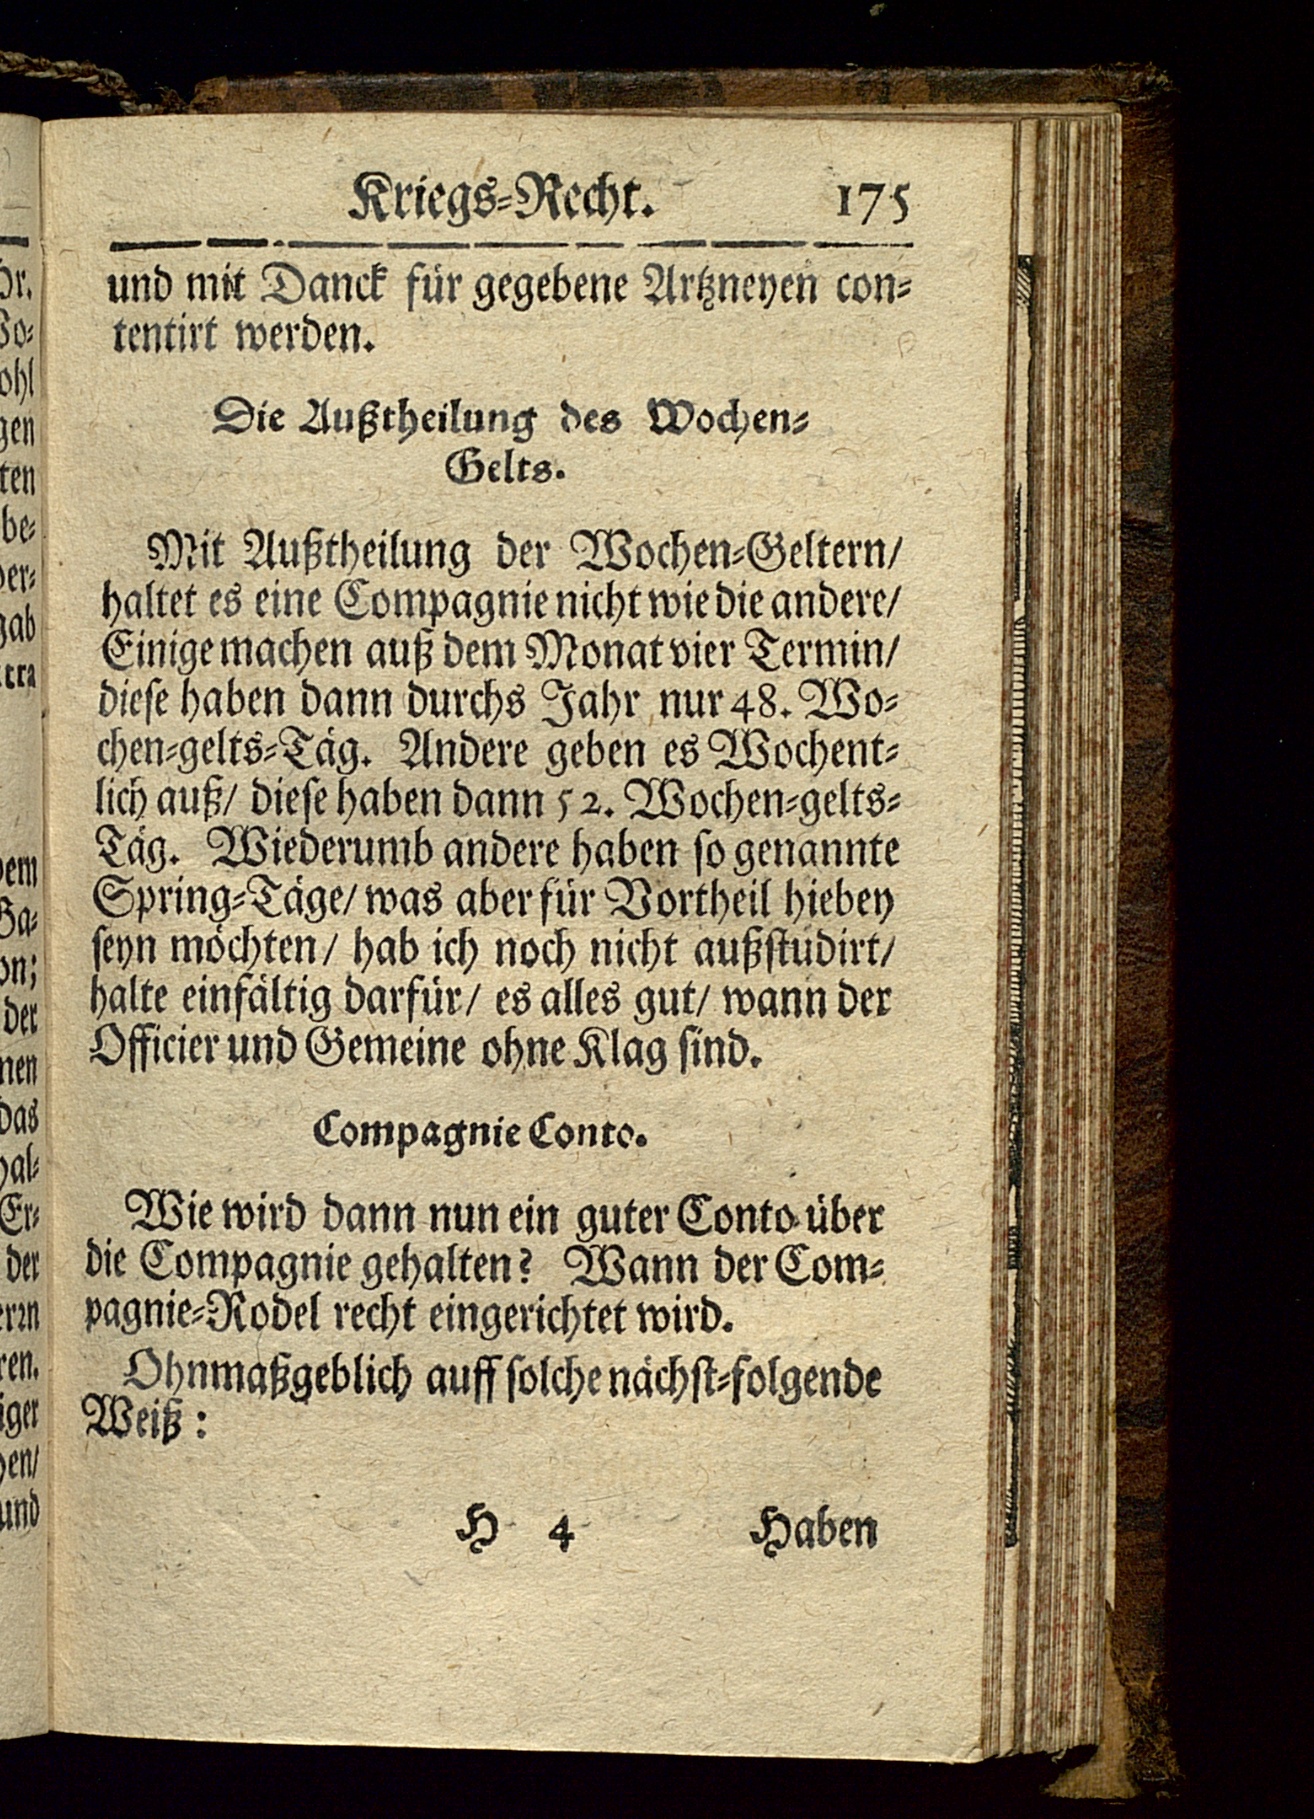 Kriegs-Recht. 175
und mit Danck für gegebene Artzneyen con-
tentirt werden.
Die Außtheilung des Wochen-
Gelts.
Mit Außtheilung der Wochen-Geltern/
haltet es eine Compagnie nicht wie die andere/
Einige machen auß dem Monat vier Termin/
diese haben dann durchs Jahr nur 48. Wo-
chen-gelts-Täg. Andere geben es Wochent-
lich auß/ diese haben dann 52. Wochen-gelts-
Täg. Wiederumb andere haben so genannte
Spring-Täge/ was aber für Vortheil hiebey
seyn möchten/ hab ich noch nicht außstudirt/
halte einfältig darfür/ es alles gut/ wann der
Officier und Gemeine ohne Klag sind.
Compagnie Conto.
Wie wird dann nun ein guter Conto über
die Compagnie gehalten? Wann der Com-
pagnie-Rodel recht eingerichtet wird.
Ohnmaßgeblich auff solche nächst-folgende
Weiß:
H 4 Haben